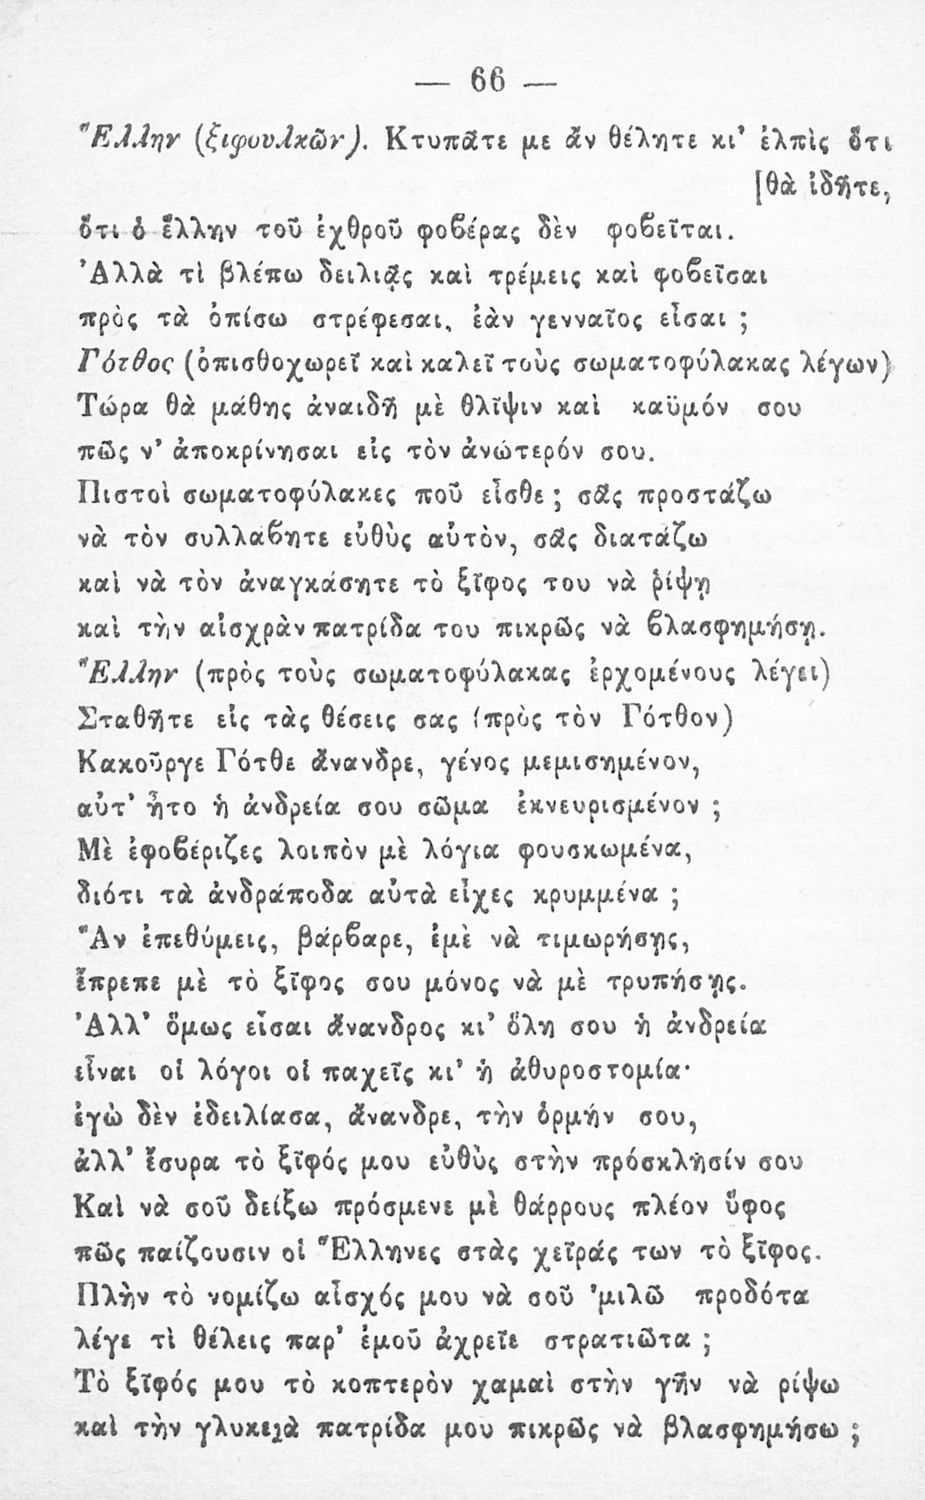 — 66 —
Ἕλλην (ξιφουλκῶν). Κτυπᾶτε με ἂν θέλητε κι’ ἐλπὶς ὅτι
[θὰ ἰδῆτε,
ὅτι ὁ ἕλλην τοῦ ἐχθροῦ φοβέρας δὲν φοβεῖται.
Ἀλλὰ τὶ βλέπω δειλιᾷς καὶ τρέμεις καὶ φοβεῖσαι
πρὸς τὰ ὀπίσω στρέφεσαι, ἐὰν γενναῖος εἶσαι ;
Γότθος (ὀπισθοχωρεῖ καὶ καλεῖ τοὺς σωματοφύλακας λέγων)
Τώρα θὰ μάθης ἀναιδῆ μὲ θλῖψιν καὶ καϋμόν σου
πῶς ν’ ἀποκρίνησαι εἰς τὸν ἀνώτερόν σου.
Πιστοὶ σωματοφύλακες ποῦ εἶσθε ; σᾶς προστάζω
νὰ τὸν συλλαβητε εὐθὺς αὐτὸν, σᾶς διατάζω
καὶ νὰ τὸν ἀναγκάσητε τὸ ξῖφος του νὰ ῥίψῃ
καὶ τὴν αἰσχρὰν πατρίδα του πικρῶς νὰ βλασφημήσῃ.
Ἕλλην (πρὸς τοὺς σωματοφύλακας ἐρχομένους λέγει)
Σταθῆτε εἰς τὰς θέσεις σας (πρὸς τὸν Γότθον)
Κακοῦργε Γότθε ἄνανδρε, γένος μεμισημένον,
αὐτ’ ἦτο ἡ ἀνδρεία σου σῶμα ἐκνευρισμένον ;
Μὲ ἐφοβέριζες λοιπὸν μὲ λόγια φουσκωμένα,
διότι τὰ ἀνδράποδα αὐτὰ εἶχες κρυμμένα ;
Ἂν ἐπεθύμεις, βάρβαρε, ἐμὲ νὰ τιμωρήσῃς,
ἔπρεπε μὲ τὸ ξῖφος σου μόνος νὰ μὲ τρυπήσῃς.
Ἀλλ’ ὅμως εἶσαι ἄνανδρος κι’ ὅλη σου ἡ ἀνδρεία
εἶναι οἱ λόγοι οἱ παχεῖς κι’ ἡ ἀθυροστομία·
ἐγὼ δὲν ἐδειλίασα, ἄνανδρε, τὴν ὁρμήν σου,
ἀλλ’ ἔσυρα τὸ ξῖφός μου εὐθὺς στὴν πρόσκλησίν σου
Καὶ νὰ σοῦ δείξω πρόσμενε μὲ θάρρους πλέον ὕφος
πῶς παίζουσιν οἱ Ἕλληνες στὰς χεῖράς των τὸ ξῖφος.
Πλὴν τὸ νομίζω αἶσχός μου νὰ σοῦ ’μιλῶ προδότα
λέγε τὶ θέλεις παρ’ ἐμοῦ ἀχρεῖε στρατιῶτα ;
Τὸ ξῖφός μου τὸ κοπτερὸν χαμαὶ στὴν γῆν νὰ ρίψω
καὶ τὴν γλυκειὰ πατρίδα μου πικρῶς νὰ βλασφημήσω ;